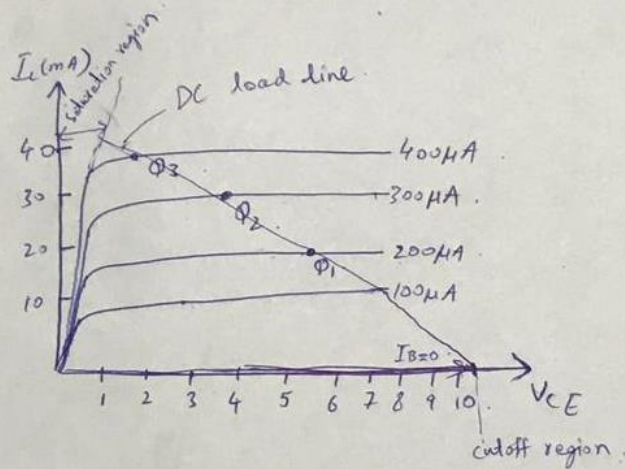 Ic (mA)
Saturation region.
DC load line.
40
30
20
10
Q3
Q2
Q1
400μA
300μA.
200μA
100μA
IB=0
1 2 3 4 5 6 7 8 9 10.
VCE
cutoff region.